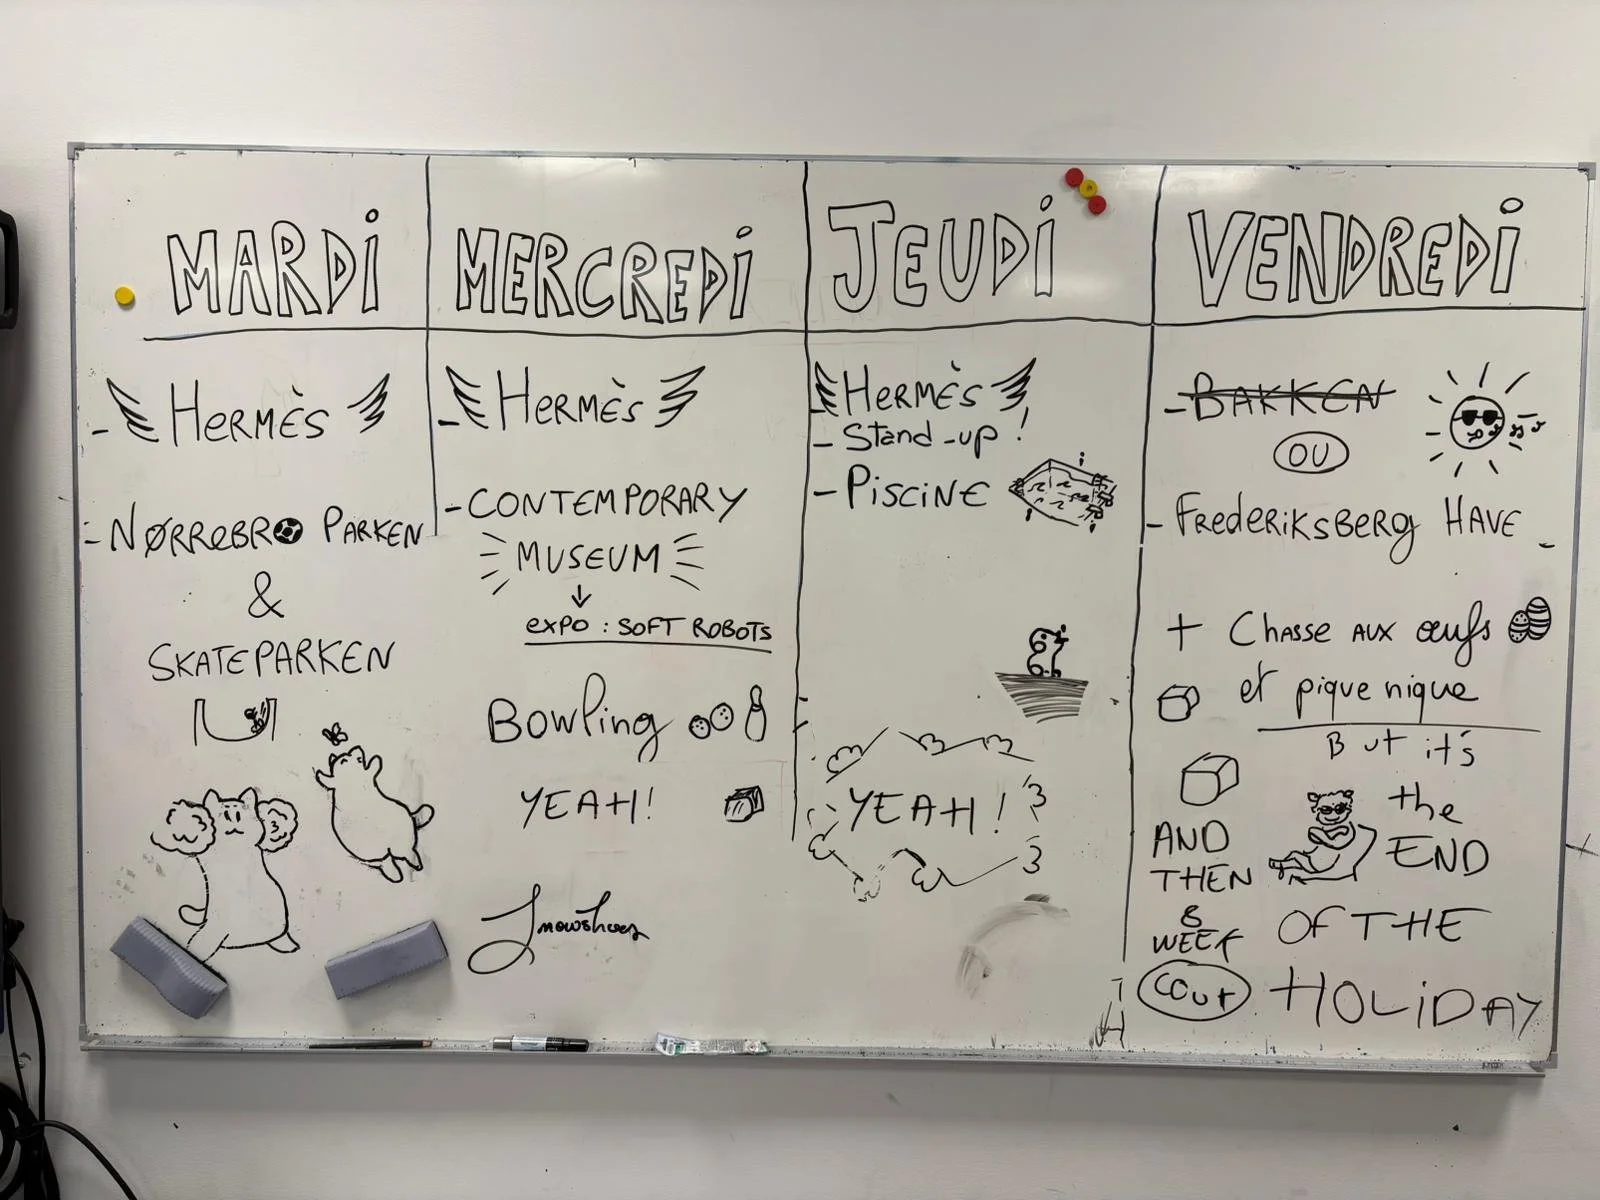 MARDI
- HERMÈS
- NØRREBRO PARKEN
&
SKATEPARKEN
MERCREDI
- HERMÈS
- CONTEMPORARY
MUSEUM
↓
EXPO : SOFT ROBOTS
Bowling
YEAH!
Snowshoes
JEUDI
- HERMÈS
- Stand-up !
- PISCINE
YEAH !
VENDREDI
- BAKKEN
OU
- FREDERIKSBERG HAVE
+ CHASSE AUX œufs
et pique nique
But it's
the
END
OF THE
HOLIDAY
AND
THEN
&
WEEK